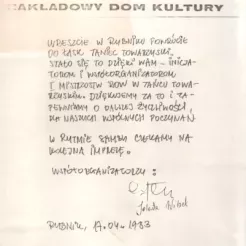 ZAKŁADOWY DOM KULTURY
WRESZCIE W RYBNIKU POWRÓCIŁ
DO ŁASK TANIEC TOWARZYSKI.
STAŁO SIĘ TO DZIĘKI WAM – INICJA-
TOROM I WSPÓŁORGANIZATOROM
I MISTRZOSTW ROW W TAŃCU TOWA-
RZYSKIM. DZIĘKUJEMY ZA TO I ZA-
PEWNIAMY O DALSZEJ ŻYCZLIWOŚCI
NASZYCH WSPÓLNYCH POCZYNAŃ
W RYTMIE SAMBA CZEKAMY NA
KOLEJNĄ IMPREZĘ.
WSPÓŁORGANIZATORZY:
Jolada
RYBNIK, 17.04.1983